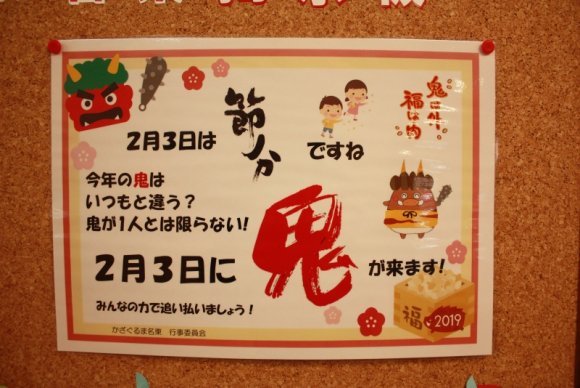 2月3日は節分ですね
鬼は外
福は内
今年の鬼は
いつもと違う？
鬼が1人とは限らない!
2月3日に鬼が来ます!
みんなの力で追い払いましょう！
かざぐるま名東 行事委員会
福
2019